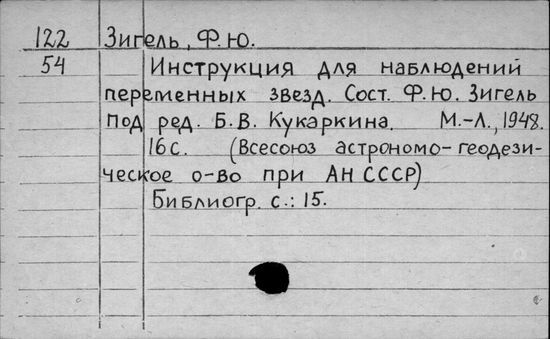 122 Зигель, Ф.Ю.
54 Инструкция для наблюдений
переменных звезд. Сост. Ф.Ю. Зигель
под ред. Б.В. Кукаркина. М.-Л., 1948.
16 с. (Всесоюз астрономо-геодези-
ческое о-во при АН СССР)
Библиогр. с.: 15.